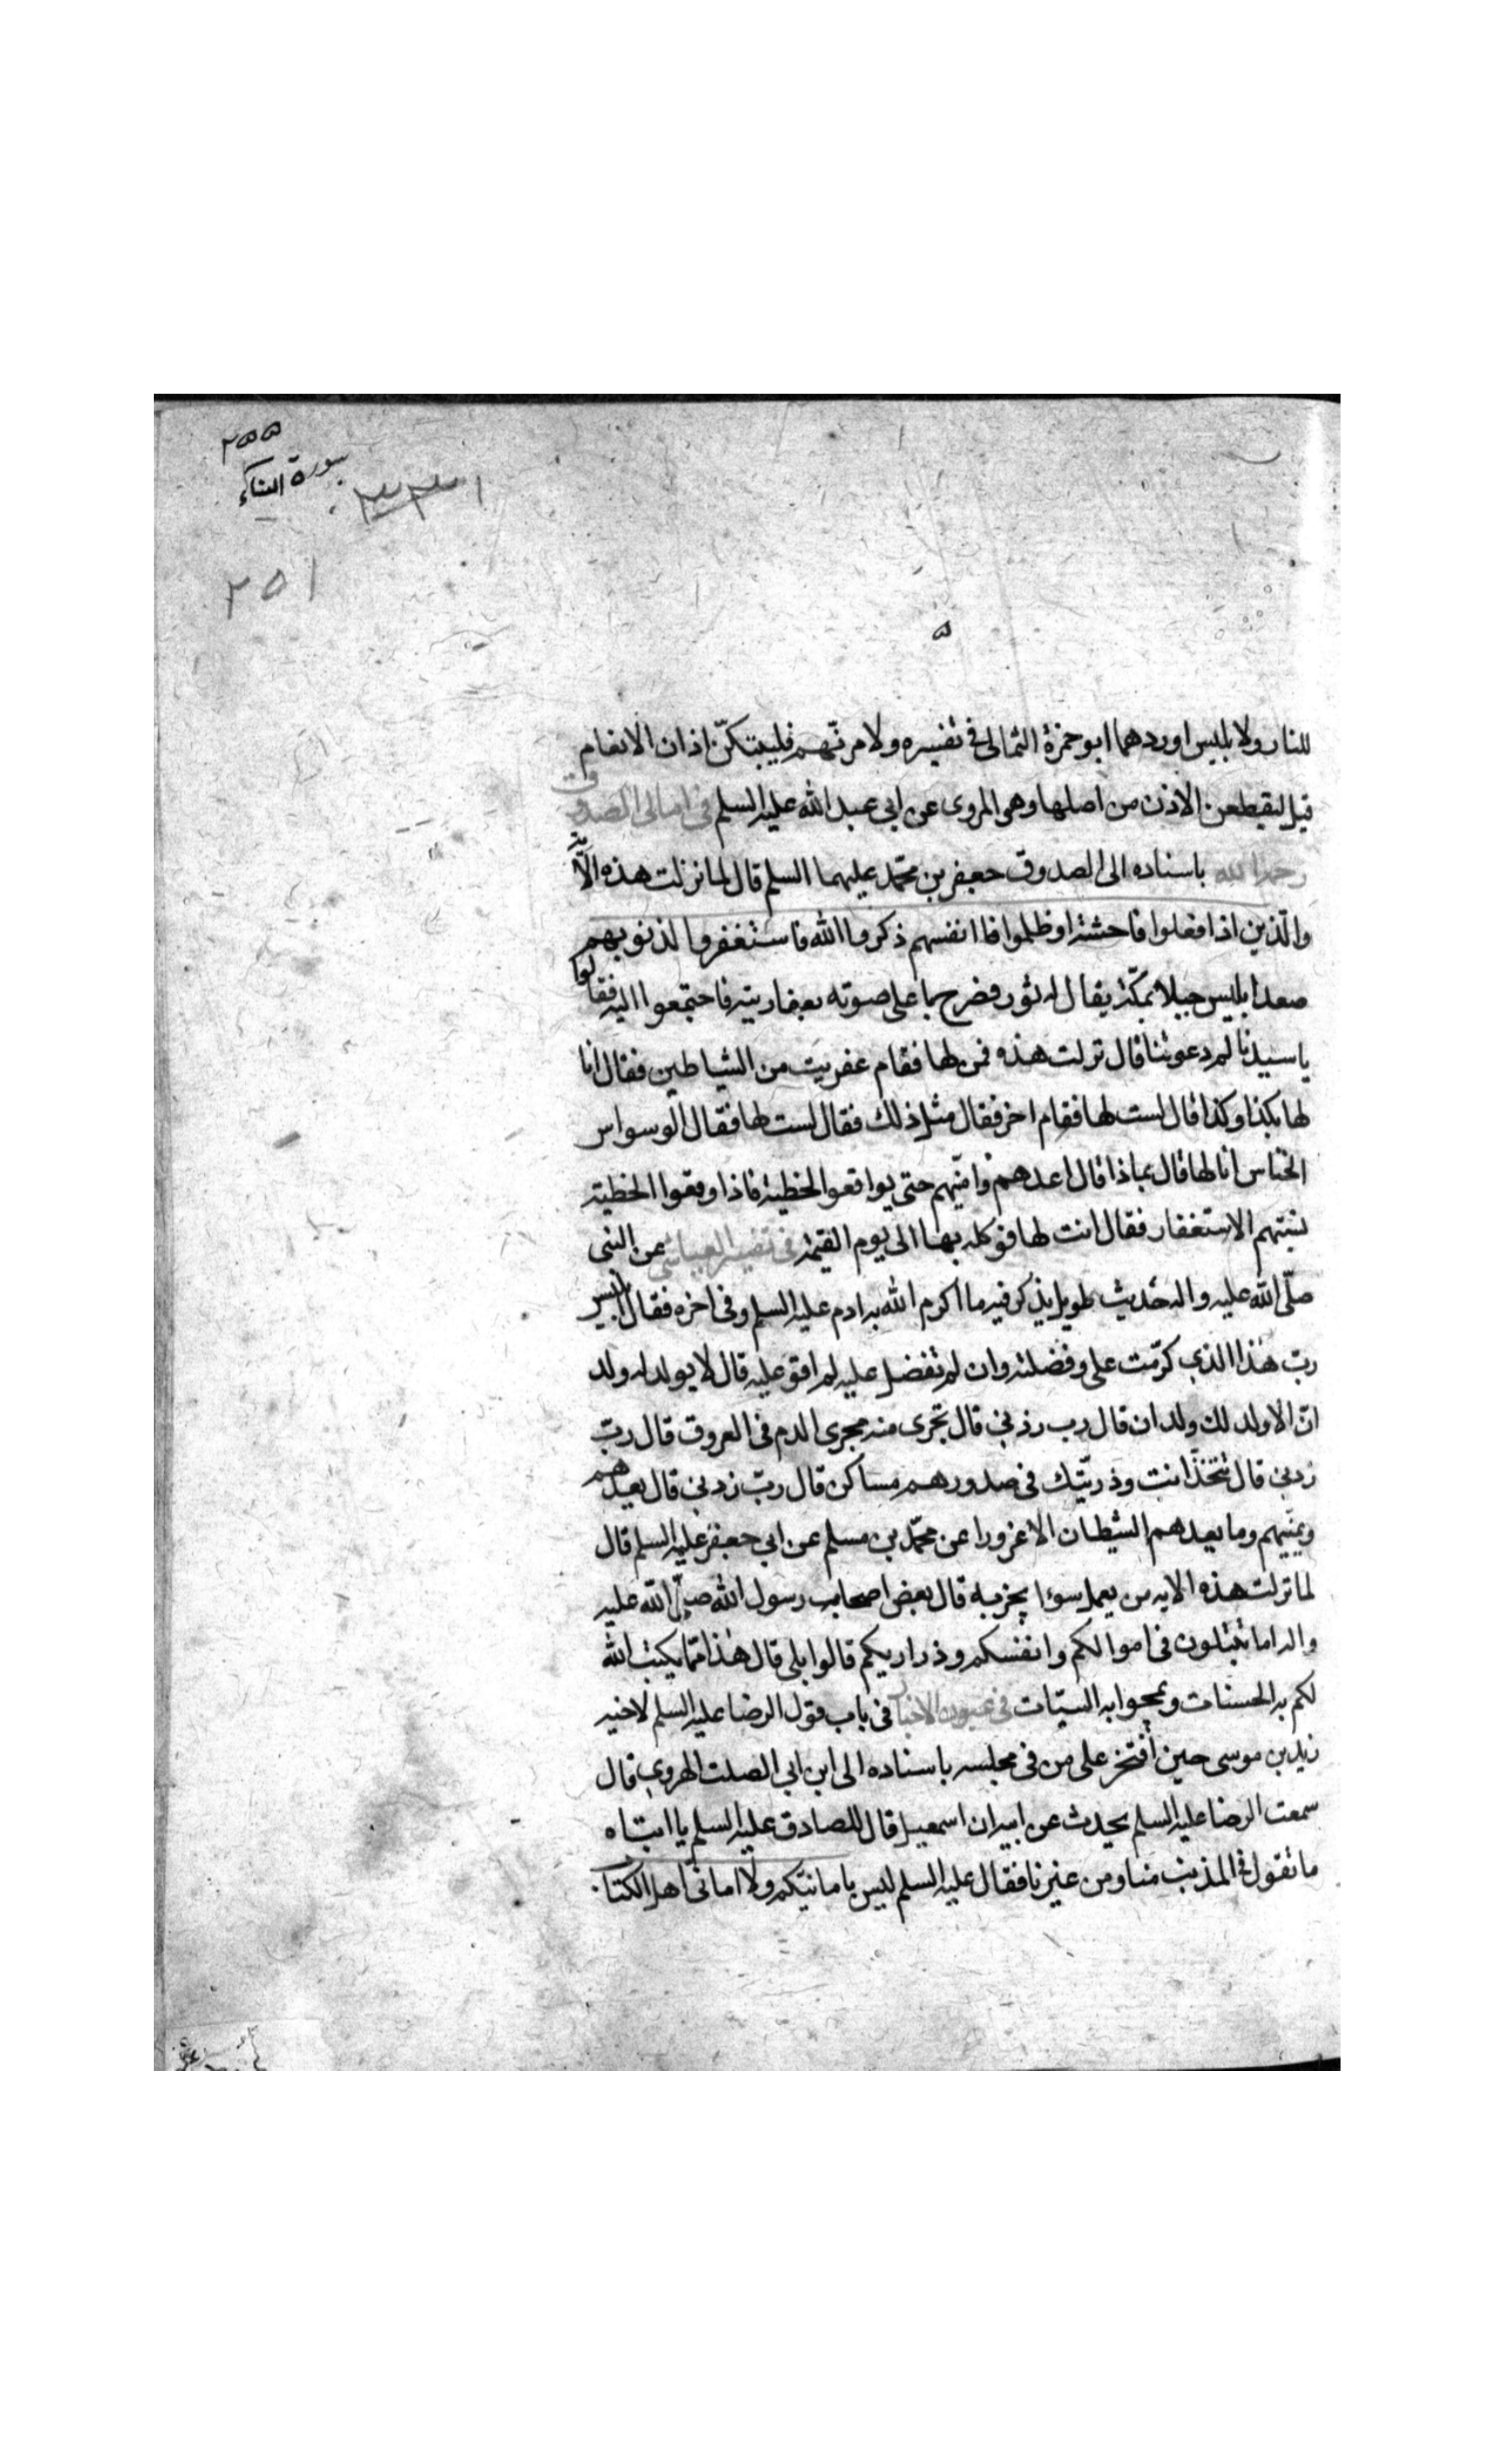 ٢٥٥
سورة النساء
٢٥١
للنار ولابليس اوردهما ابو حمزة الثمالى فى تفسيره ولامرنّهم فليبتكنّ اذان الانعام
قيل ليقطعن الاذن من اصلها وهى المروى عن ابى عبد الله عليه السلم فى امالى الصدوق
رحمه الله باسناده الى الصدوق جعفر بن محمّد عليهما السلم قال لما نزلت هذه الآية
والّذين اذا فعلوا فاحشة او ظلموا انفسهم ذكروا الله فاستغفروا لذنوبهم
صعد ابليس جبلا بمكّة يقال له ثور فصرح باعلى صوته بعفاريته فاجتمعوا اليه فقالوا
يا سيدنا لم دعوتنا قال نزلت هذه فمن لها فقام عفريت من الشياطين فقال انا
لها بكذا وكذا قال لست لها فقام اخر فقال مثل ذلك فقال لست لها فقال الوسواس
الخناس انا لها قال بماذا قال اعدهم وامنّيهم حتى يواقعوا الخطيئة فاذا وقعوا الخطية
نسيتهم الاستغفار فقال انت لها فوكله بها الى يوم القيمة فى تفسير العياشى عن النبى
صلّى الله عليه واله حديث طويل يذكر فيه ما اكرم الله به ادم عليه السلم وفى اخره فقال ابليس
ربّ هذا الذى كرّمت على وفضلته وان لم تفضل عليه لم اقو عليه قال لا يولد له ولد
انّ الا ولد لك ولدان قال رب زدنى قال تجرى منه مجرى الدم فى العروق قال ربّ
زدنى قال تتخذ انت وذريّتك فى صدورهم مساكن قال ربّ زدنى قال يعدهم
ويمنّيهم وما يعدهم الشيطان الا غرورا عن محمّد بن مسلم عن ابى جعفر عليه السلم قال
لما نزلت هذه الايه من يعمل سوءا يجز به قال بعض اصحاب رسول الله صلّى الله عليه
واله اما تبتلون فى اموالكم وانفسكم وذراريكم قالوا بلى قال هذا ممّا يكتب الله
لكم به الحسنات ويمحوا به السيّات فى عيون الاخبار فى باب قول الرضا عليه السلم لاخيه
زيد بن موسى حين افتخر على من فى مجلسه باسناده الى ابن ابى الصلت الهروى قال
سمعت الرضا عليه السلم يحدث عن ابيه ان اسمعيل قال للصادق عليه السلم يا ابتاه
ما تقول فى المذنب منا ومن غيرنا فقال عليه السلم ليس بامانيّكم ولا امانىّ اهل الكتاب